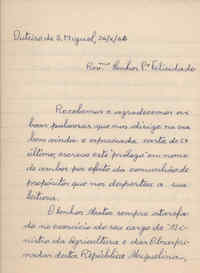 Outeiro de S. Miguel, 24/2/46
Revmo Senhor Pe Felicidade
Recebemos e agradecemos as
boas palavras que nos dirige na sua
bem vinda e apreciada carta de
último, escrevo este "prólogo" em nome
de ambos por efeito da comunhão de
propósitos que nos despertou a sua
leitura.
O Senhor Matos sempre
no exercício do seu cargo de "Mi-
nistro da Agricultura e das Obras pú-
desta República Miguelina,